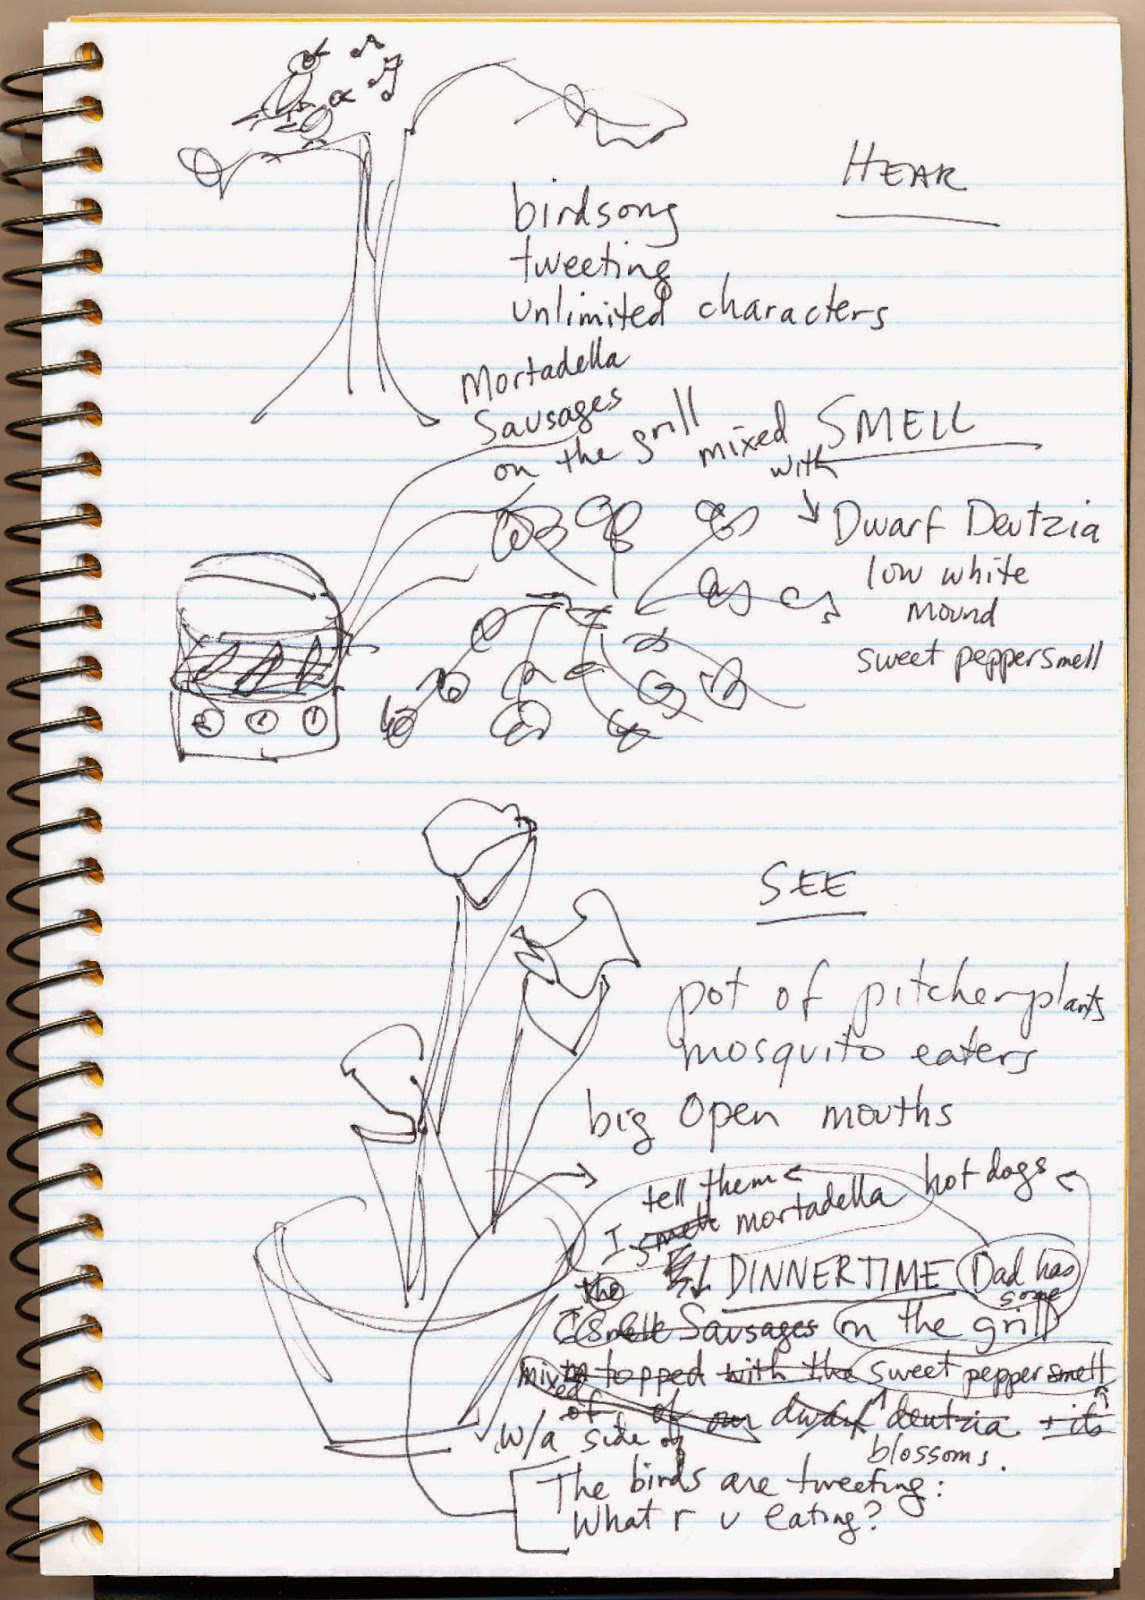 HEAR
birdsong
tweeting
unlimited characters
Mortadella
Sausages
on the grill mixed
with
SMELL
Dwarf Deutzia
low white
mound
sweet peppersmell
SEE
pot of pitcherplants
mosquito eaters
big open mouths
tell them
hot dogs
I smell mortadella
DINNERTIME Dad has
some
the
I smell Sausages on the grill
mixed topped with the sweet peppersmell
of our dwarf deutzia + its
w/a side of
blossoms.
The birds are tweeting:
What r u eating?